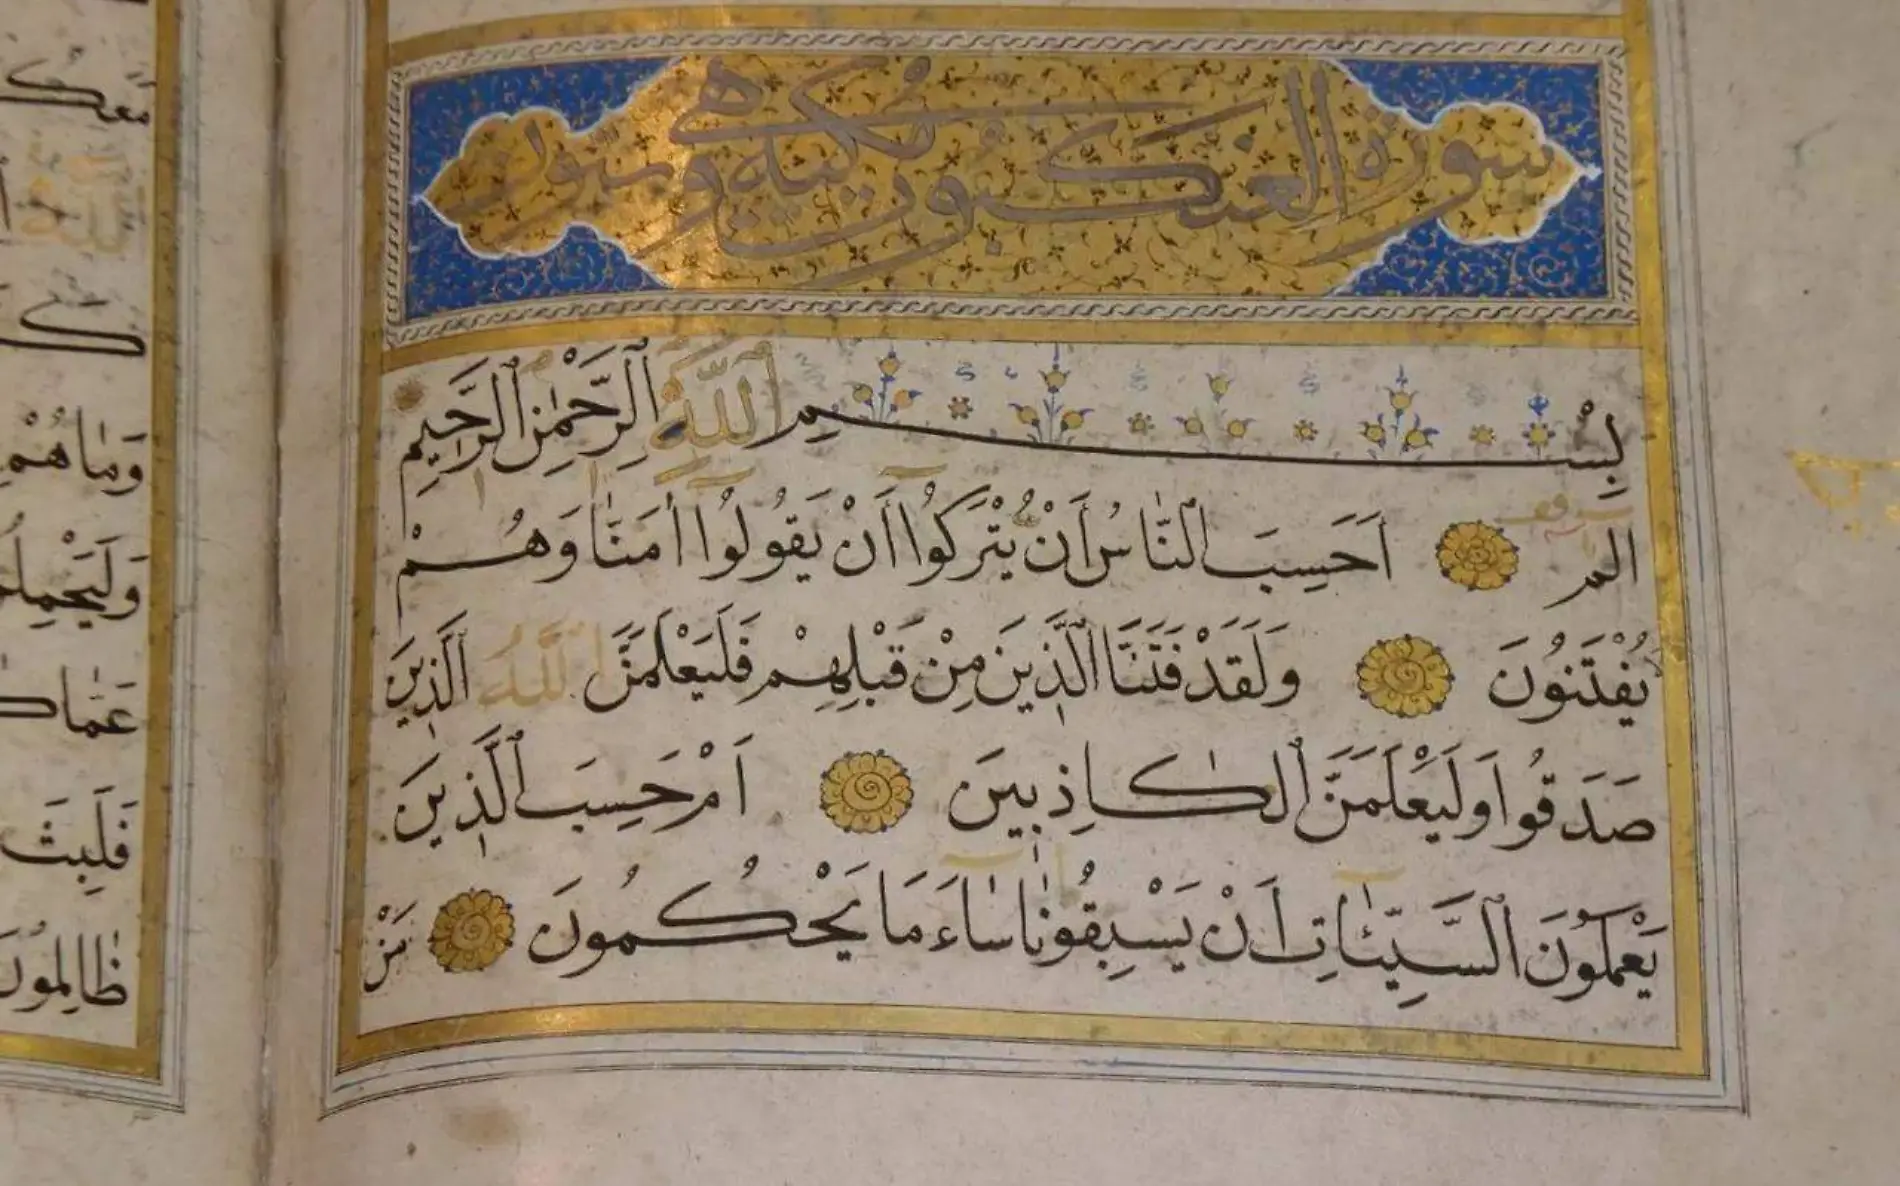 سورة العنكبوت مكية وهي ستون
بِسْمِ اللّٰهِ الرَّحْمٰنِ الرَّحِيمِ
الم اَحَسِبَ النَّاسُ أَنْ يُتْرَكُوا أَنْ يَقُولُوا اٰمَنَّا وَهُمْ
يُفْتَنُونَ وَلَقَدْ فَتَنَّا الَّذِينَ مِنْ قَبْلِهِمْ فَلَيَعْلَمَنَّ اللّٰهُ الَّذِينَ
صَدَقُوا وَلَيَعْلَمَنَّ الْكَاذِبِينَ اَمْ حَسِبَ الَّذِينَ
يَعْمَلُونَ السَّيِّئَاتِ اَنْ يَسْبِقُونَا سَاءَ مَا يَحْكُمُونَ مَنْ
مَعَكُ
وَمَا هُمْ
وَلَيَحْمِلُ
عَمَّا كَ
فَلَبِثَ
ظَالِمُونَ